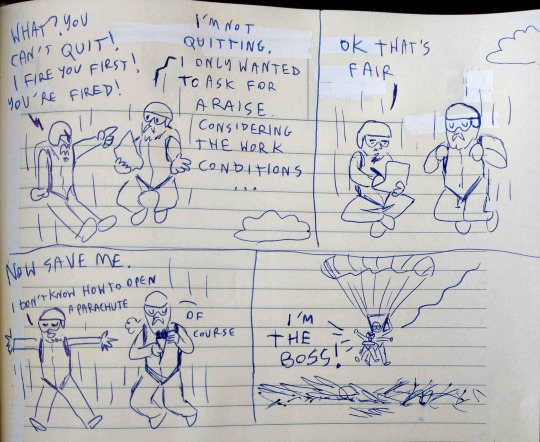 WHAT? YOU
CAN'T QUIT!
I FIRE YOU FIRST!
YOU'RE FIRED!
I'M NOT
QUITTING.
I ONLY WANTED
TO ASK FOR
A RAISE.
CONSIDERING
THE WORK
CONDITIONS
...
OK THAT'S
FAIR
NOW SAVE ME.
I DON'T KNOW HOW TO OPEN
A PARACHUTE
OF
COURSE
I'M
THE
BOSS!